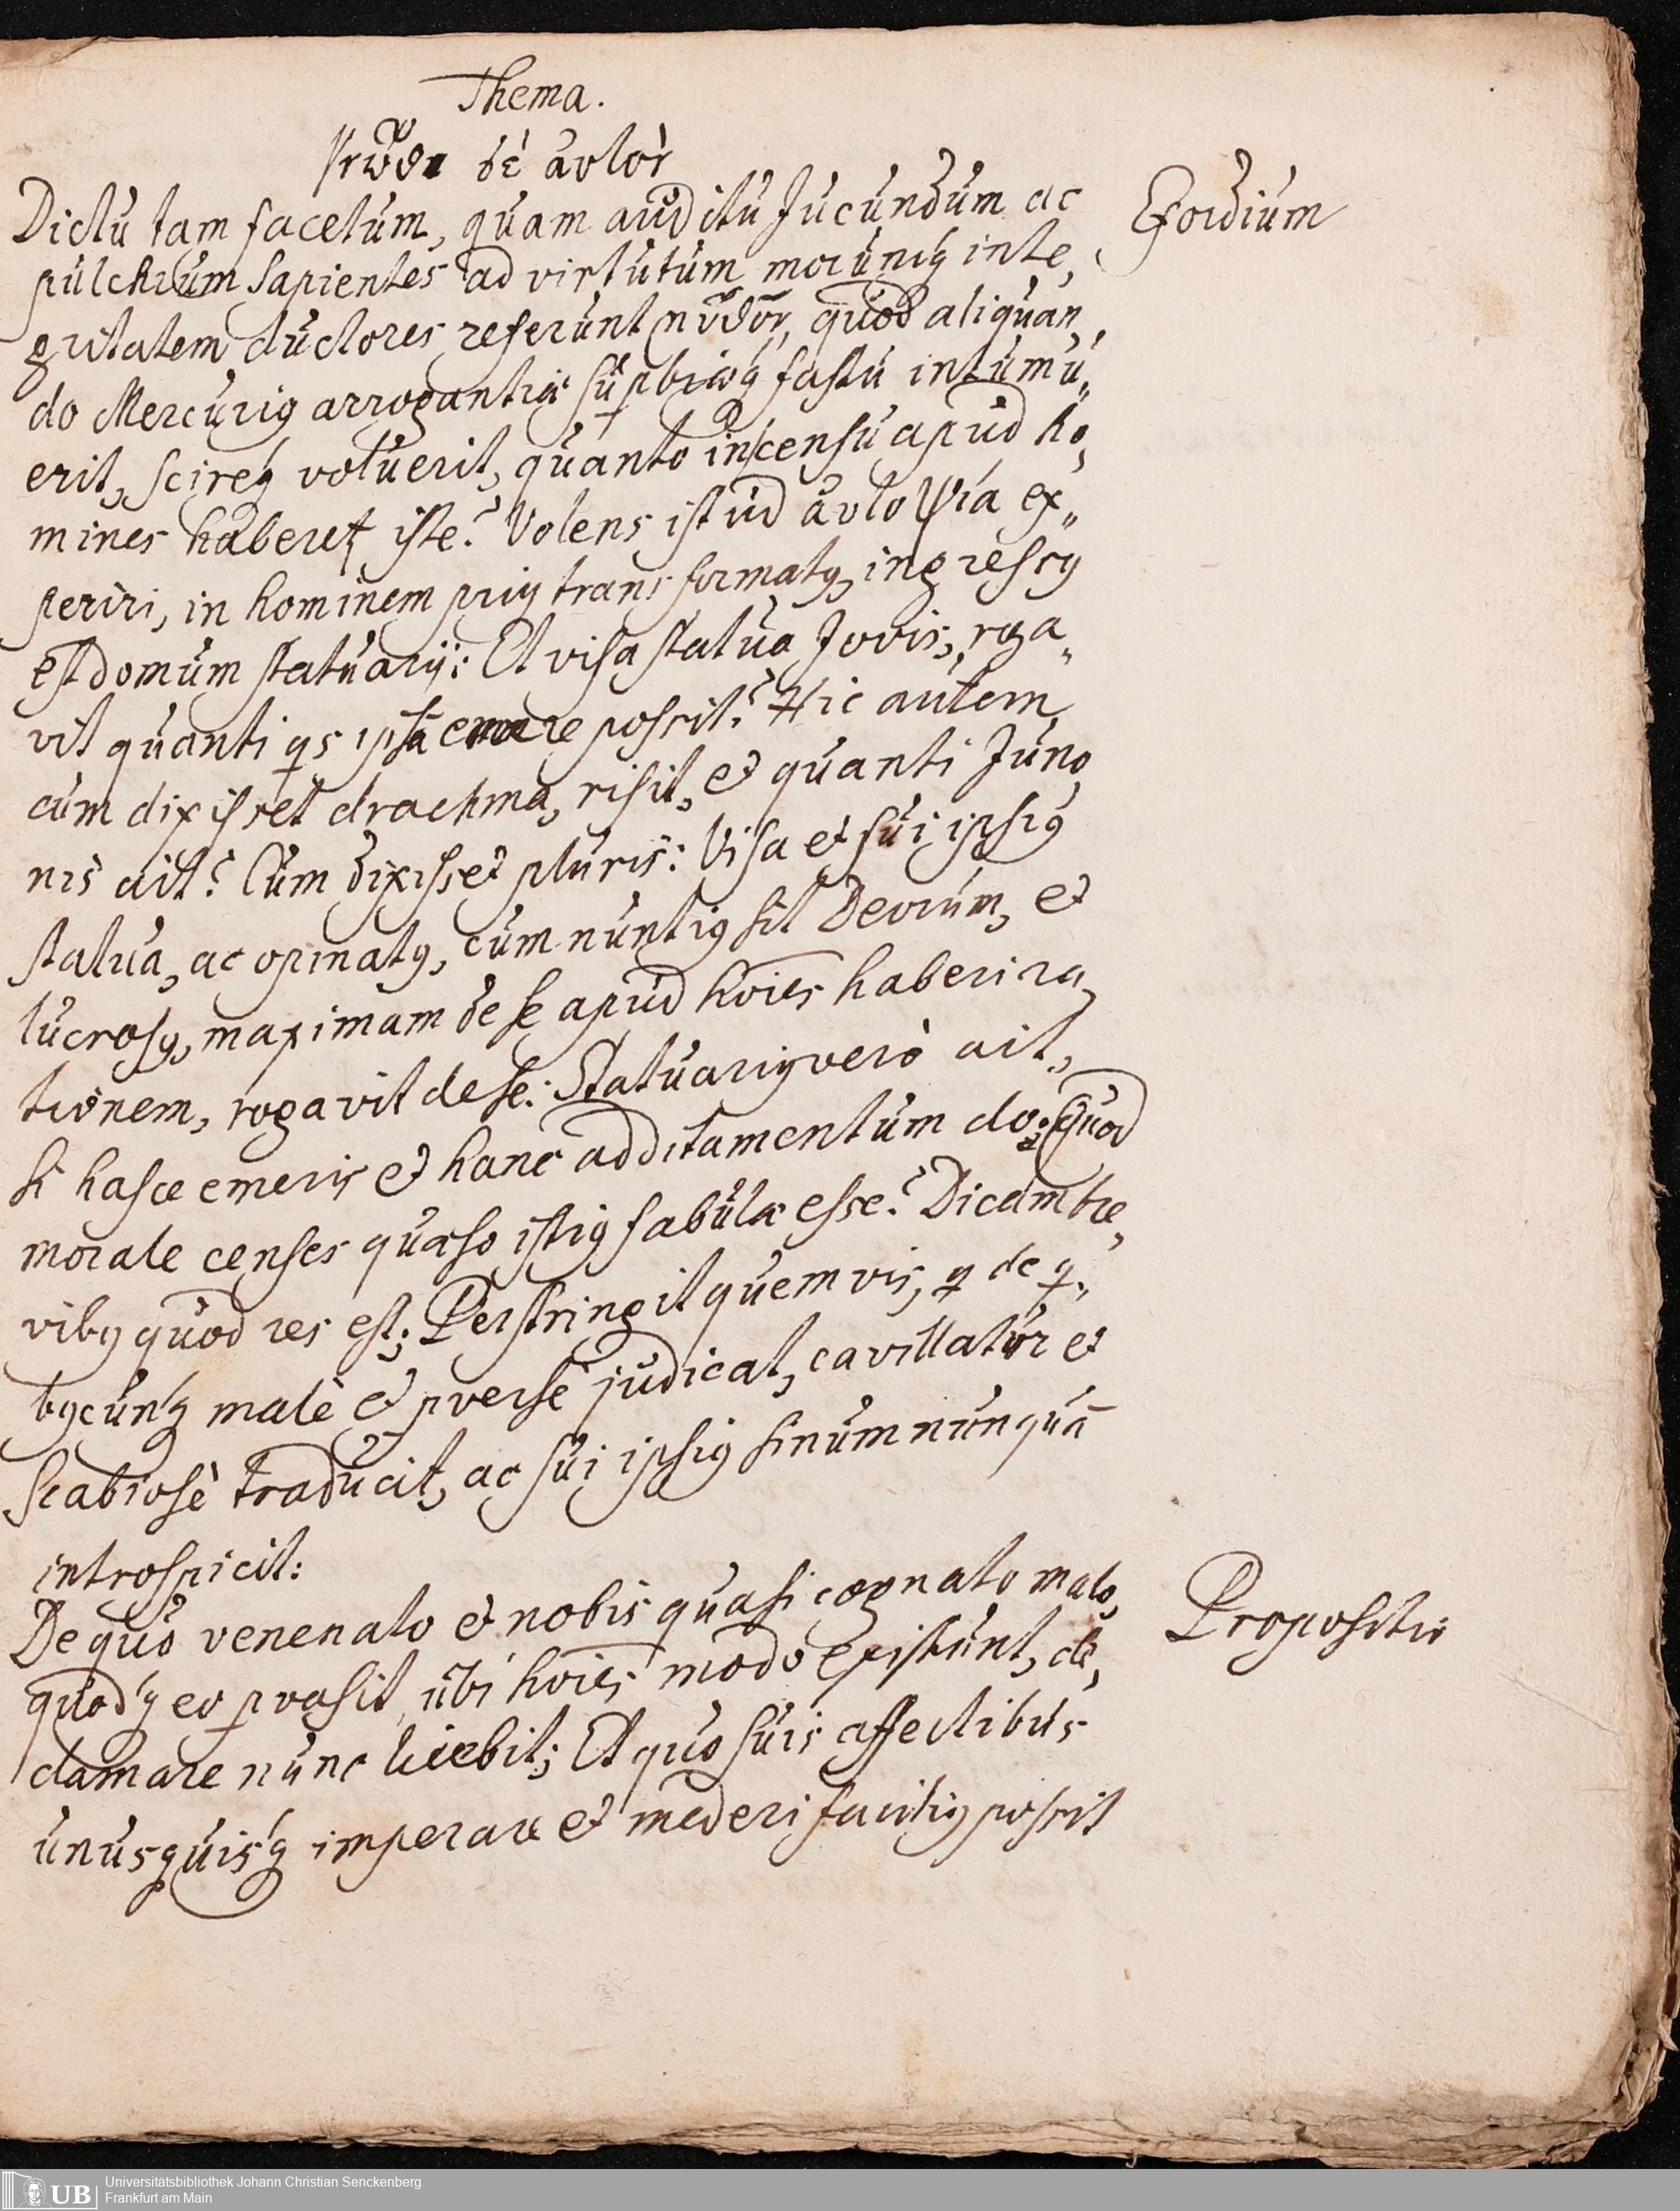 Thema.
γνῶθι δὲ αυτὸν
Dictu tam facetum, quam auditu jucundum ac
Exordium
pulchrum sapientes ad virtutum morumq́ inte„
gritatem ductores referunt μῦθον, quod aliquan„
do Mercurig arrogantiæ supbiæq́ fastu intumu„
erit, scireq́ voluerit, quanto in censu apud ho„
mines haberet iste? Volens istud αυτοψία ex„
periri, in hominem prig transformatg, ingressg
est domum statuarij: Et visa statua Jovis, roga„
vit quanti qs ipsā emere possit? Hic autem
cum dixisset drachma, risit, et quanti Juno„
nis ait? Cum dixisset pluris: Visa et sui ipsig
statua, ac opinatg, cum nuntig sit Deorum, et
lucrosg, maximam de se apud hoīes haberi ra„
tionem, rogavit de se: Statuarig verò ait,
si hasce emeris et hanc additamentum do: Quod
morale censes quæso istig fabulæ esse? Dicam bre„
vibg quod res est; Perstringit quemvis, q de q„
bgcunq́ malè et pversè judicat, cavillatur et
scabiosè traducit, ac sui ipsig sinum nunquā
introspicit:
De quo venenato et nobis quasi cognato malo,
Propositio
quodq́ eo pvasit, ubi hoīes modo existunt, de„
clamare nunc licebit; Et quo suis affectibus
unusquisq́ imperare et mederi facilig possit
UB
Universitätsbibliothek Johann Christian Senckenberg
Frankfurt am Main